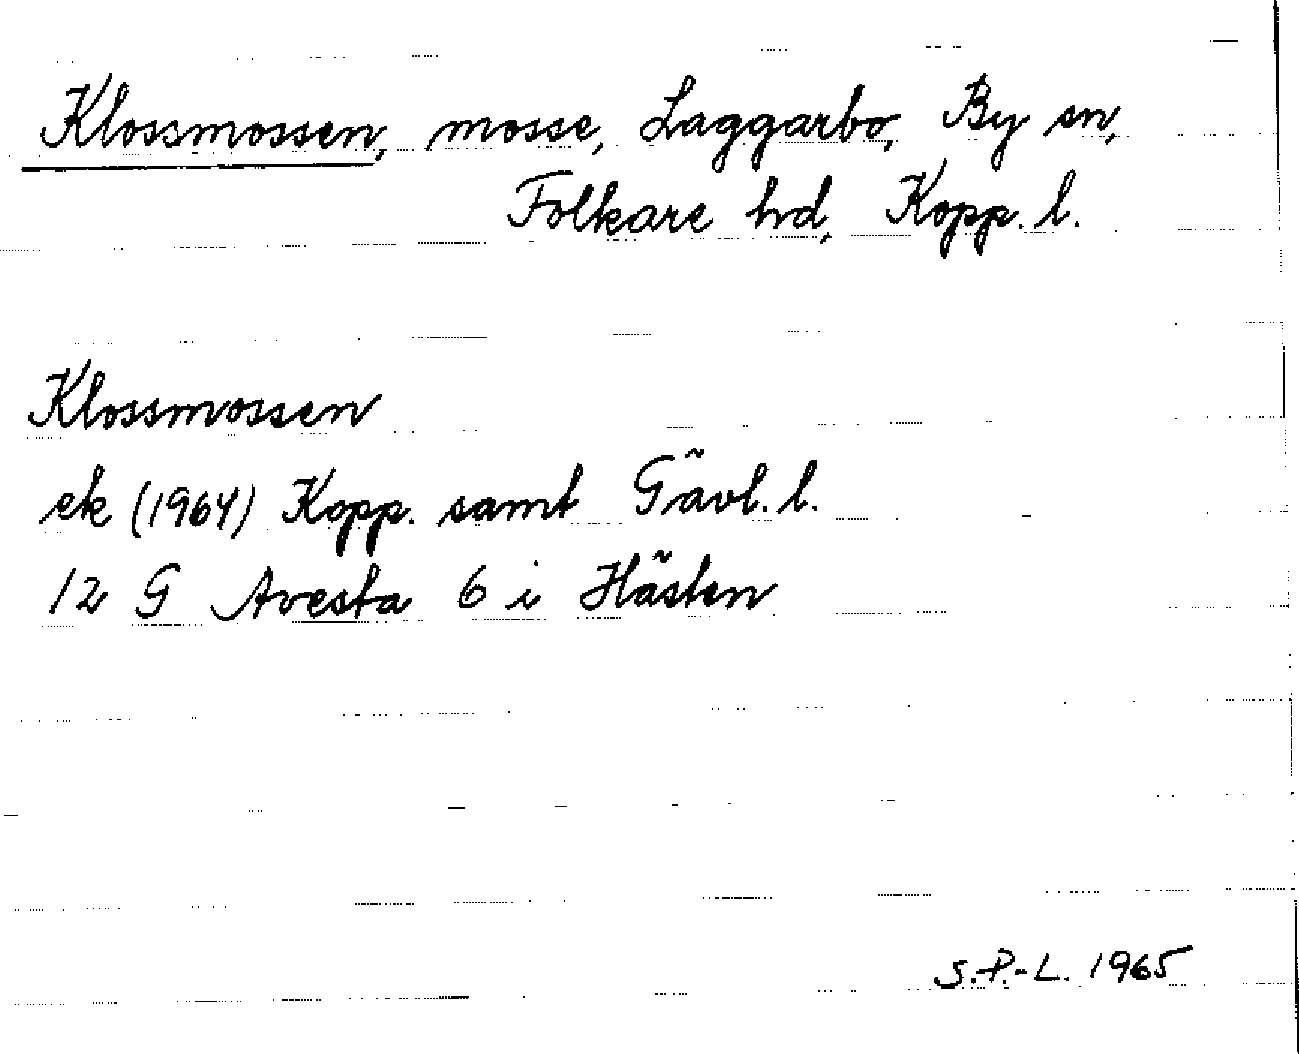 Klossmossen, mosse, Laggarbo, By sn,
Folkare hd, Kopp. l.
Klossmossen
ek (1964) Kopp. samt Gävl. l.
12 G Avesta 6 i Hästen
S.P.-L. 1965